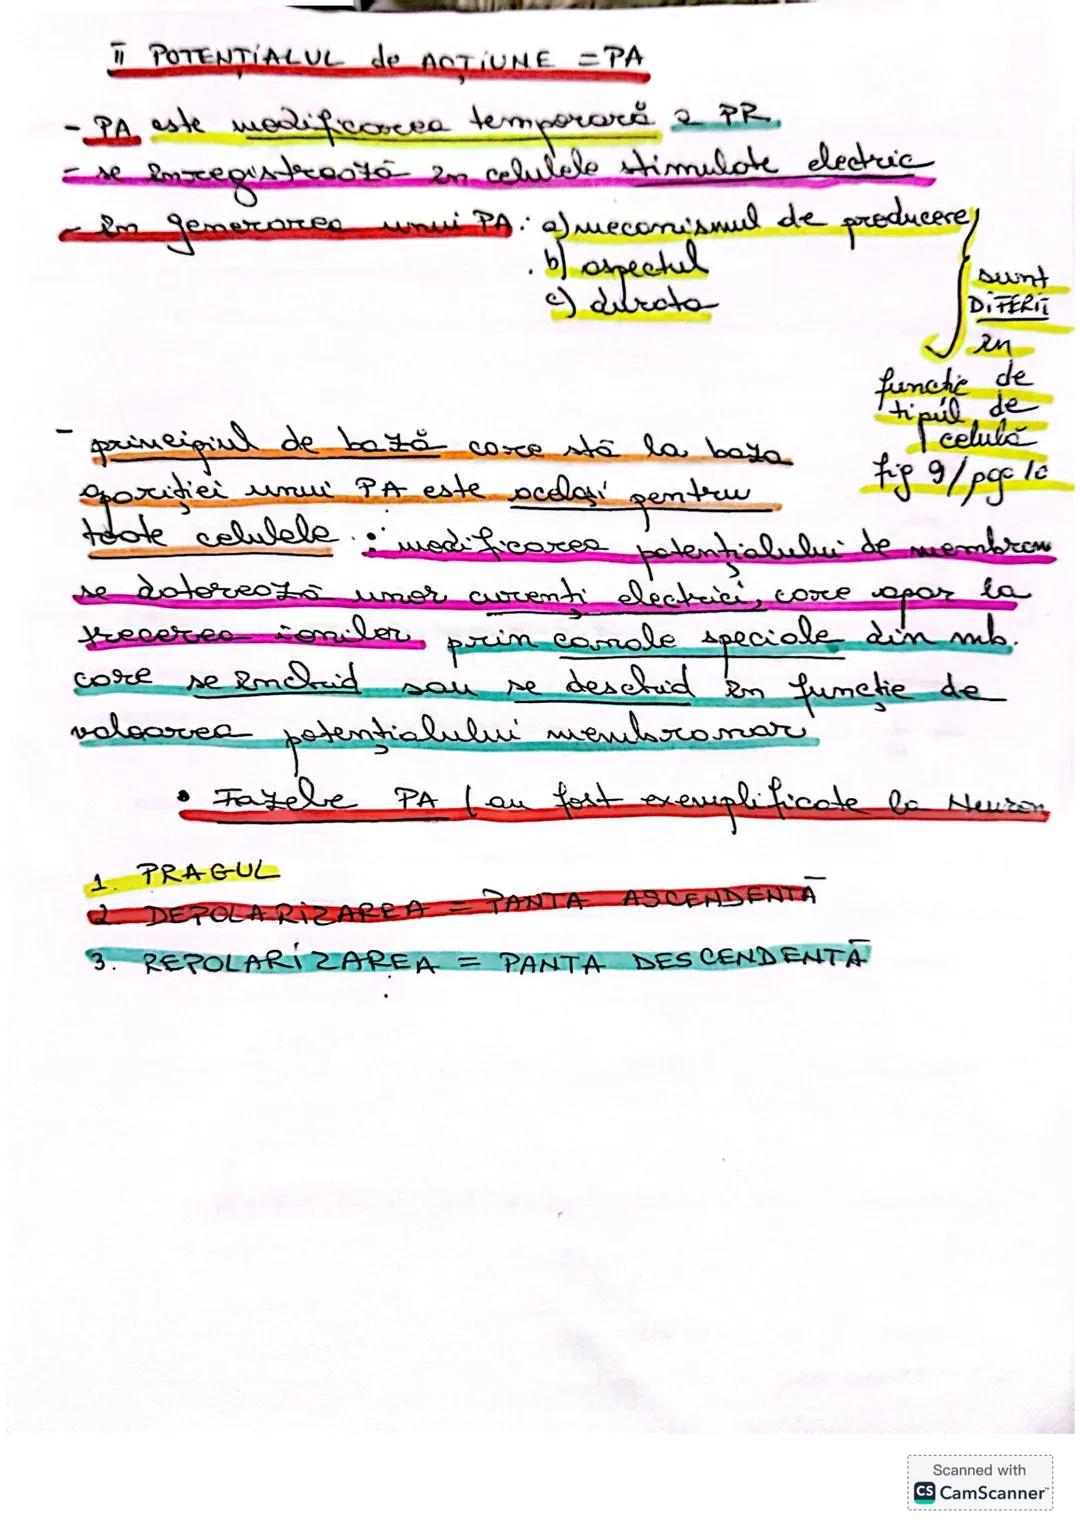 II POTENȚIALUL de ACȚIUNE = PA
- PA este modificarea temporară a PR.
- se înregistrează în celulele stimulate electric
- în generarea unui PA: a) mecanismul de producere
b) aspectul
c) durata
sunt
DIFERIȚI
în
funcție de
tipul de
celulă
fig 9/pg 10
- principiul de bază care stă la baza
apariției unui PA este același pentru
toate celulele : modificarea potențialului de membran
se datorează unor curenți electrici, care apar la
trecerea ionilor prin canale speciale din mb.
care se închid sau se deschid în funcție de
valoarea potențialului membranar
• Fazele PA (au fost exemplificate la Neuron
1. PRAGUL
2 DEPOLARIZAREA = PANTA ASCENDENTĂ
3. REPOLARIZAREA = PANTA DESCENDENTĂ
Scanned with
CS CamScanner